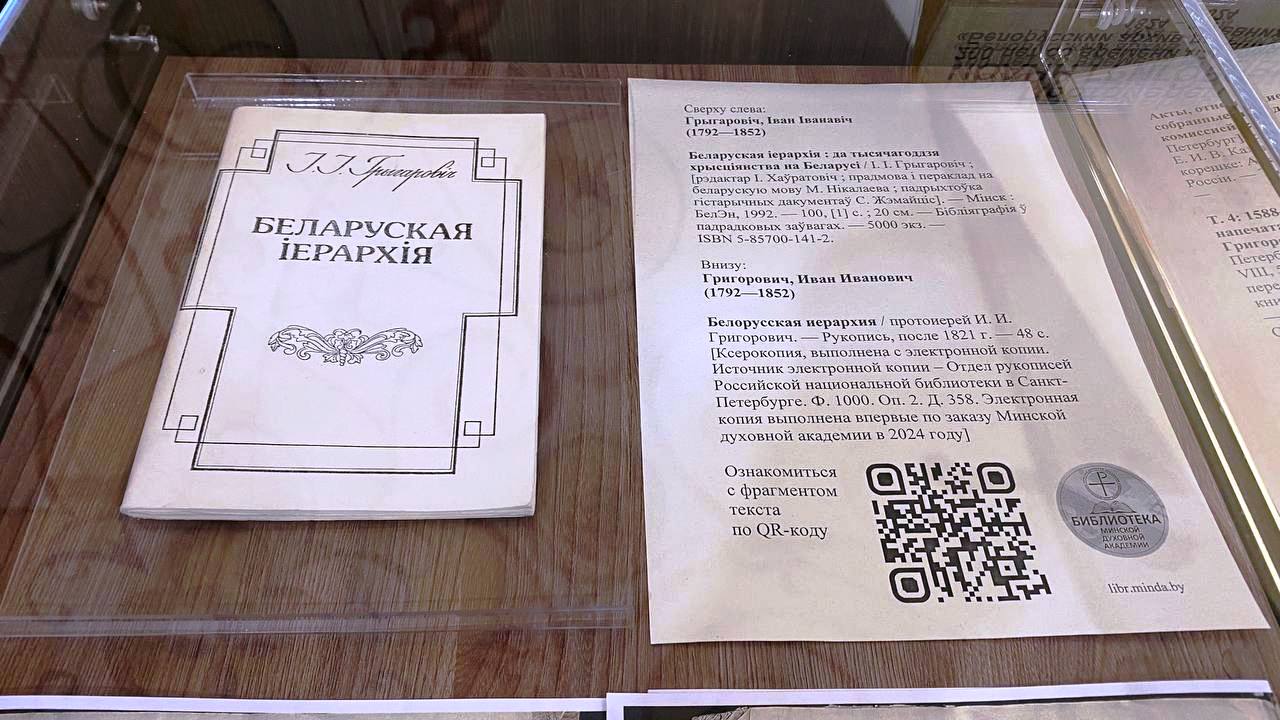 І. І. Грыгаровіч
БЕЛАРУСКАЯ
ІЕРАРХІЯ
Сверху слева:
Грыгаровіч, Іван Іванавіч
(1792—1852)
Беларуская іерархія : да тысячагоддзя
хрысціянства на Беларусі / І. І. Грыгаровіч ;
[рэдактар І. Хаўратовіч ; прадмова і пераклад на
беларускую мову М. Нікалаева ; падрыхтоўка
гістарычных дакументаў С. Жэмайціс]. — Мінск :
БелЭн, 1992. — 100, [1] с. ; 20 см. — Бібліяграфія ў
падрадковых заўвагах. — 5000 экз. —
ISBN 5-85700-141-2.
Внизу:
Григорович, Иван Иванович
(1792—1852)
Белорусская иерархия / протоиерей И. И.
Григорович. — Рукопись, после 1821 г. — 48 с.
[Ксерокопия, выполнена с электронной копии.
Источник электронной копии – Отдел рукописей
Российской национальной библиотеки в Санкт-
Петербурге. Ф. 1000. Оп. 2. Д. 358. Электронная
копия выполнена впервые по заказу Минской
духовной академии в 2024 году]
Ознакомиться
с фрагментом
текста
по QR-коду
БИБЛИОТЕКА
МИНСКОЙ
ДУХОВНОЙ
АКАДЕМИИ
libr.minda.by
Акты,
собранные
комиссией
Е. И. В.
России. —
Т. 4: 1588